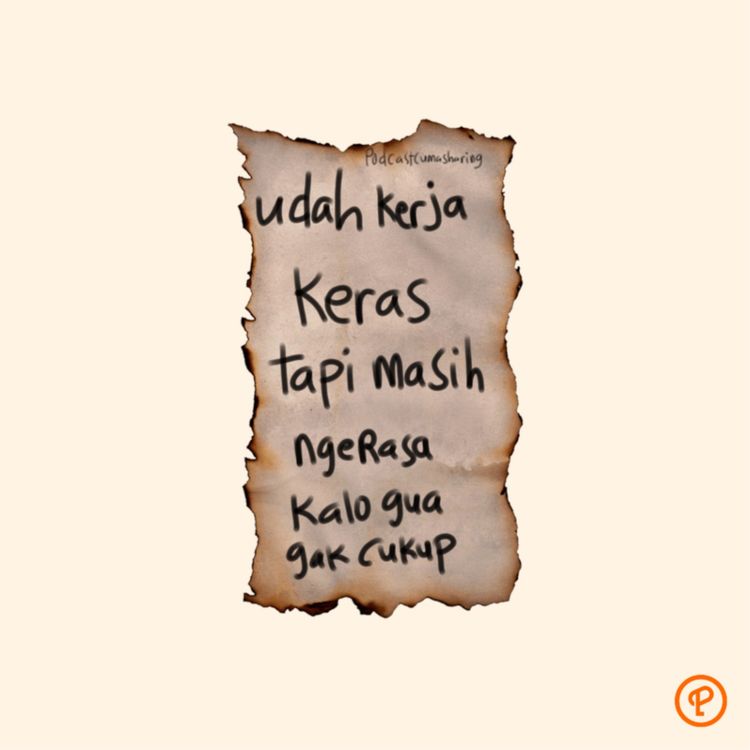 Podcastcumasharing
udah kerja
keras
tapi masih
ngeRasa
kalo gua
gak cukup
P